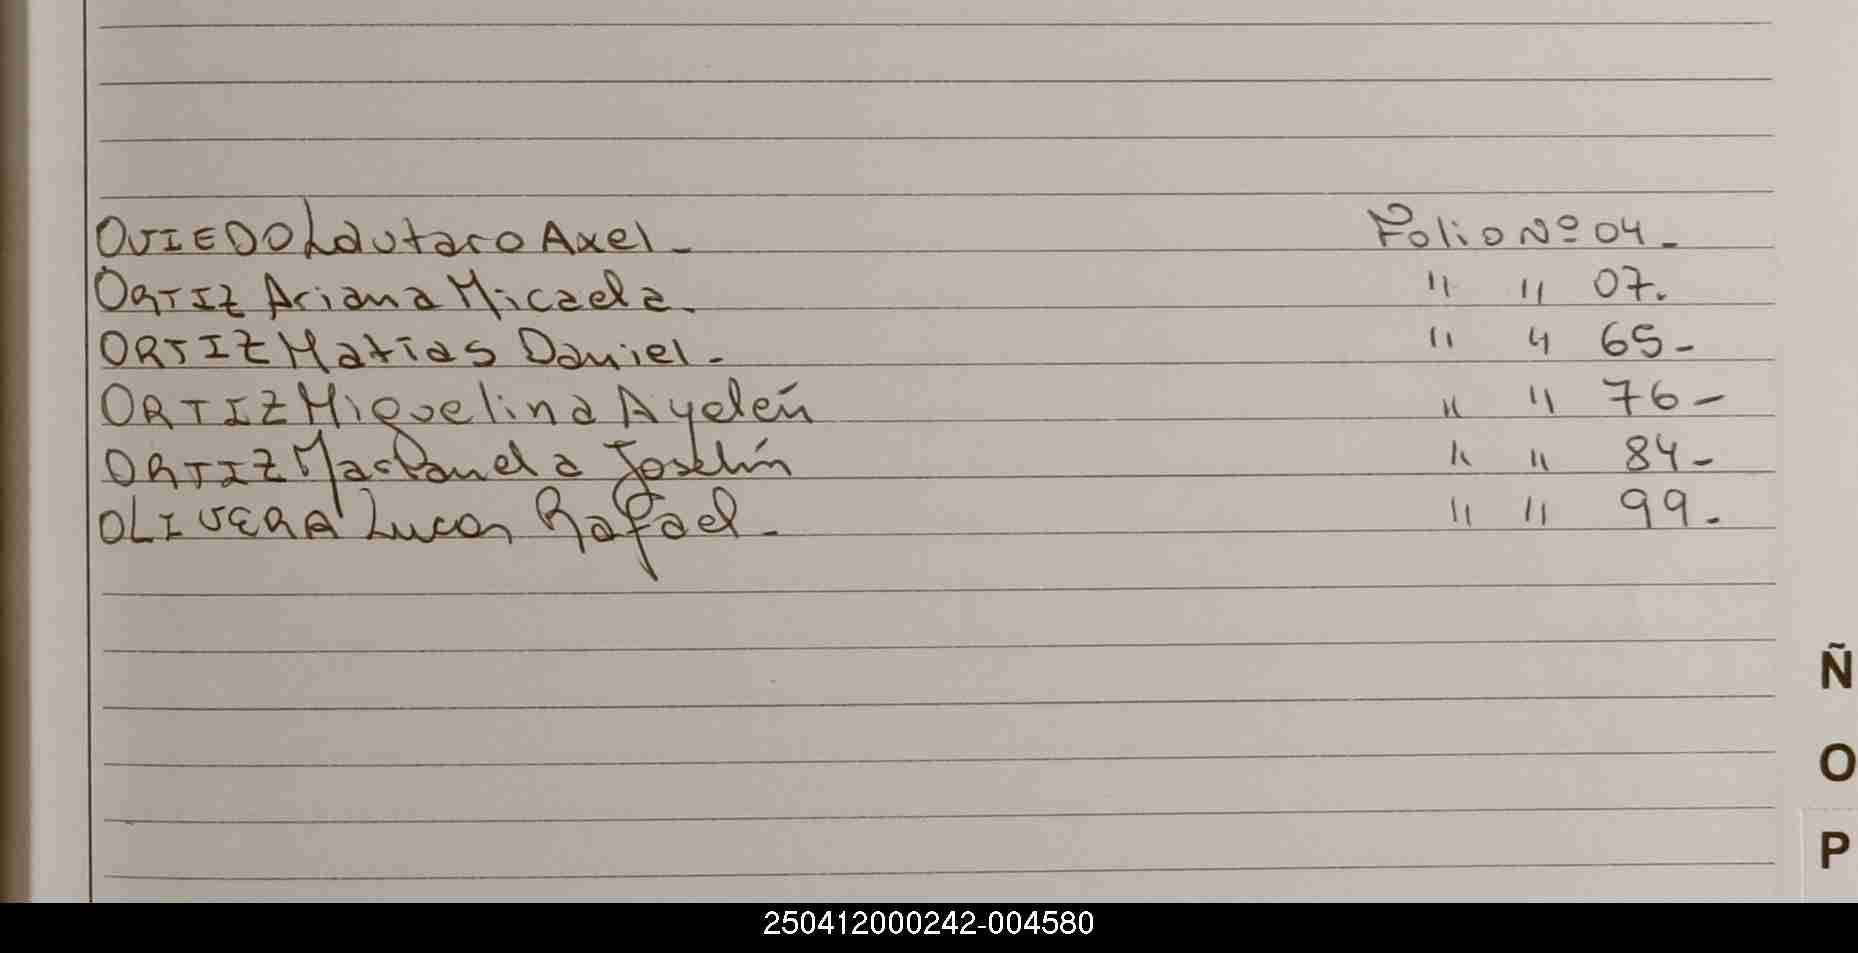 OVIEDO Lautaro Axel - Folio Nº 04 -
ORTIZ Ariana Micaela. " " 07.
ORTIZ Matias Daniel - " " 65 -
ORTIZ Miquelina Ayelén " " 76 -
ORTIZ Joselín " " 84 -
OLIVERA Lucas Rafael - " " 99 -
Ñ
O
P
250412000242-004580